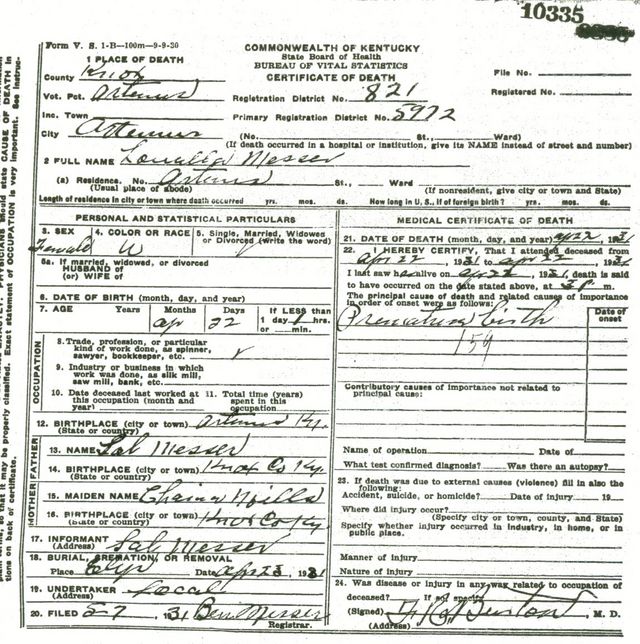 10335
Form V. S. 1-B—100m—9-9-30
COMMONWEALTH OF KENTUCKY
State Board of Health
BUREAU OF VITAL STATISTICS
CERTIFICATE OF DEATH
File No.
Registered No.
1 PLACE OF DEATH
County Knox
Vot. Pct. Artemus
Registration District No. 821
Inc. Town
Primary Registration District No. 5972
City Artemus (No. St., Ward)
(If death occurred in a hospital or institution, give its NAME instead of street and number)
2 FULL NAME Messer
(a) Residence. No. Artemus St., Ward
(Usual place of abode) (If nonresident, give city or town and State)
Length of residence in city or town where death occurred yrs. mos. ds. How long in U. S., if of foreign birth? yrs. mos. ds.
PERSONAL AND STATISTICAL PARTICULARS
3. SEX 4. COLOR OR RACE 5. Single, Married, Widowed
or Divorced (write the word)
Female W
5a. If married, widowed, or divorced
HUSBAND of
(or) WIFE of
6. DATE OF BIRTH (month, day, and year)
7. AGE Years Months Days If LESS than
1 day, hrs.
or min.
ap 22
OCCUPATION
8. Trade, profession, or particular
kind of work done, as spinner,
sawyer, bookkeeper, etc.
9. Industry or business in which
work was done, as silk mill,
saw mill, bank, etc.
10. Date deceased last worked at
this occupation (month and
year)
11. Total time (years)
spent in this
occupation
12. BIRTHPLACE (city or town) Artemus Ky.
(State or country)
FATHER
13. NAME Sal Messer
14. BIRTHPLACE (city or town) Knox Co Ky.
(State or country)
MOTHER
15. MAIDEN NAME Mills
16. BIRTHPLACE (city or town) Knox Co Ky
(State or country)
17. INFORMANT Sal Messer
(Address)
18. BURIAL, CREMATION, OR REMOVAL
Place Date Apr 23, 1931
19. UNDERTAKER Local
(Address)
20. FILED 5-7 31 Ben Messer
Registrar.
MEDICAL CERTIFICATE OF DEATH
21. DATE OF DEATH (month, day, and year) ap 22, 1931
22. I HEREBY CERTIFY, That I attended deceased from
apr 22 1931 to apr 22 1931
I last saw h alive on apr 22 1931, death is said
to have occurred on the date stated above, at 3 p m.
The principal cause of death and related causes of importance
in order of onset were as follows:
Date of
onset
Premature birth
159
Contributory causes of importance not related to
principal cause:
Name of operation Date of
What test confirmed diagnosis? Was there an autopsy?
23. If death was due to external causes (violence) fill in also the
following:
Accident, suicide, or homicide? Date of injury 19
Where did injury occur?
(Specify city or town, county, and State)
Specify whether injury occurred in industry, in home, or in
public place.
Manner of injury
Nature of injury
24. Was disease or injury in any way related to occupation of
deceased? If so, specify
(Signed) Burton, M. D.
(Address)